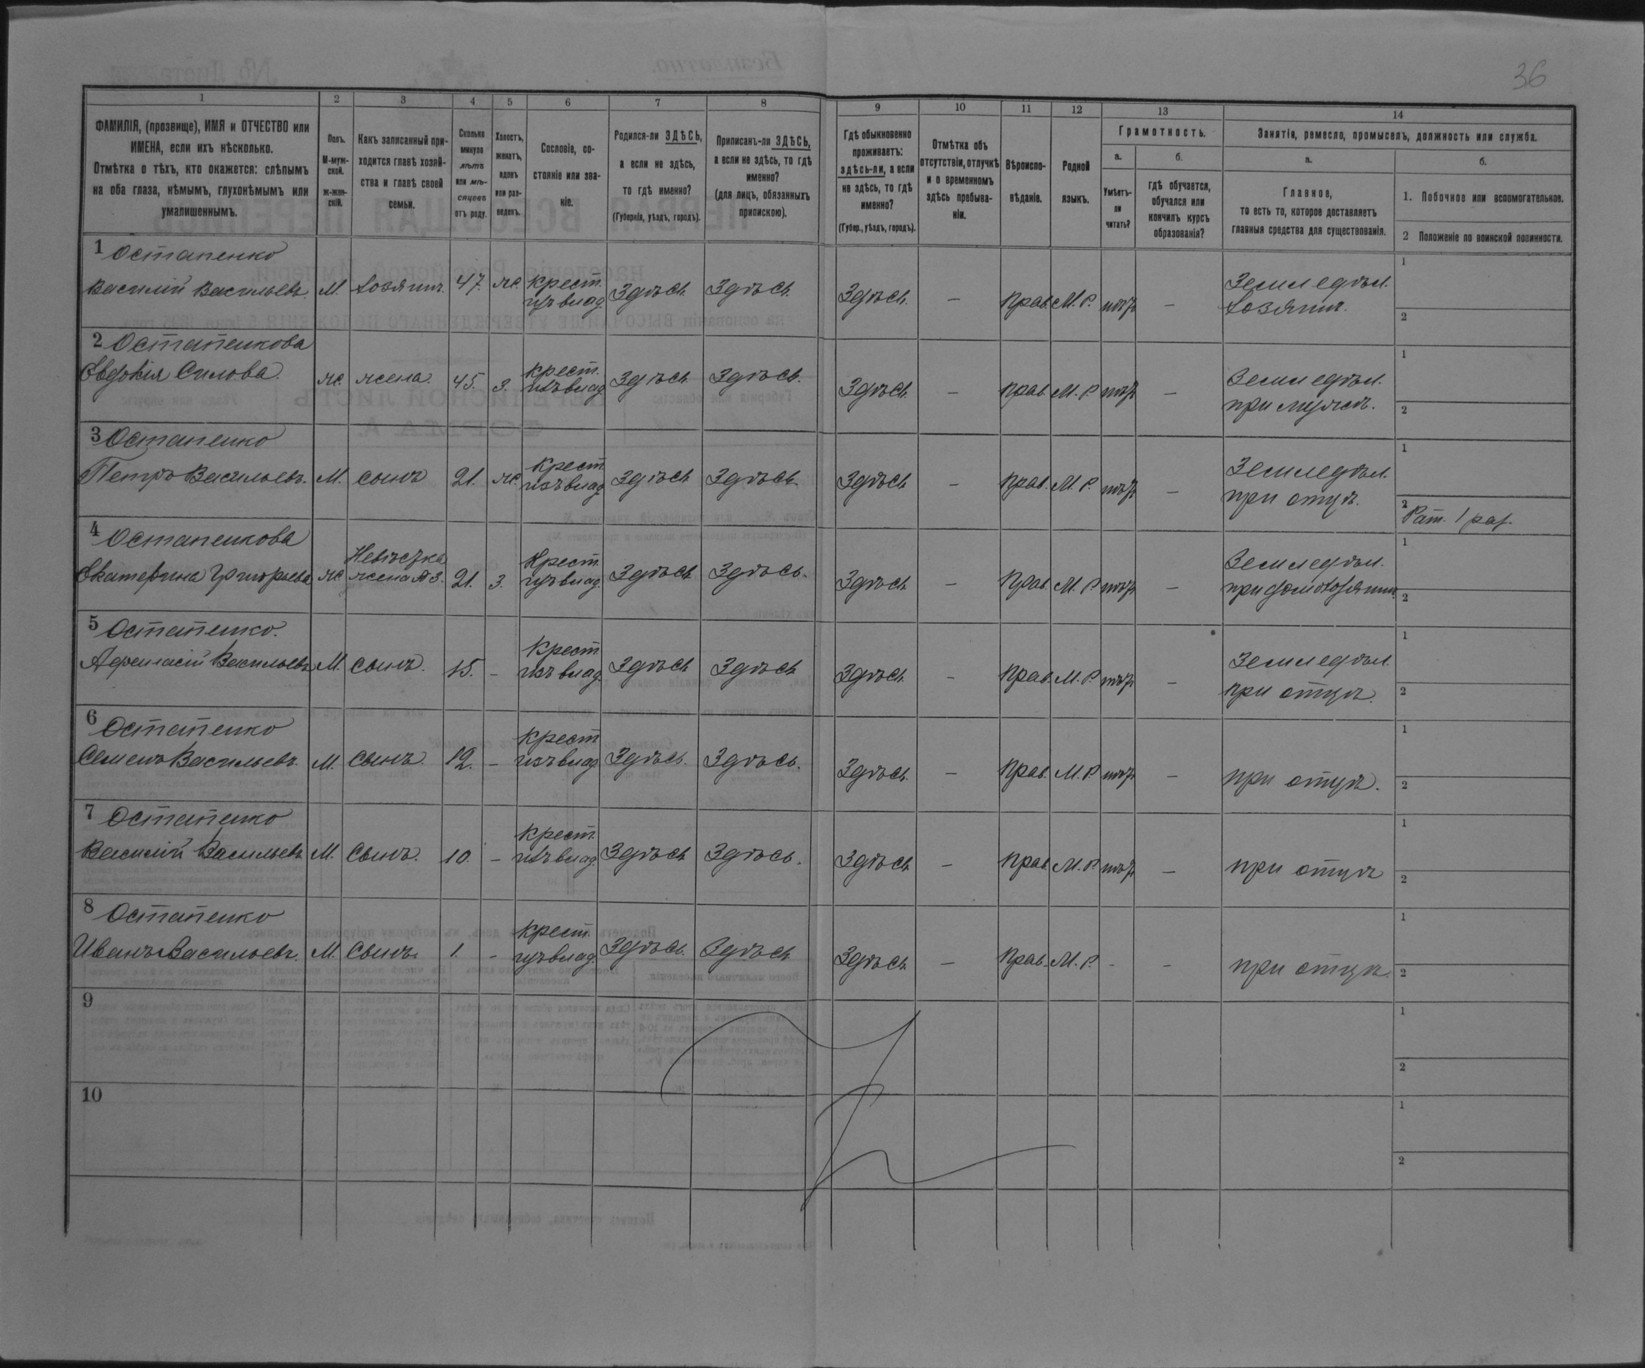 36
1 2 3 4 5 6 7 8 9 10 11 12 13 14
ФАМИЛІЯ, (прозвище), ИМЯ и ОТЧЕСТВО или
ИМЕНА, если ихъ нѣсколько.
Отмѣтка о тѣхъ, кто окажется: слѣпымъ
на оба глаза, нѣмымъ, глухонѣмымъ или
умалишеннымъ.
Полъ.
М-муж-
ской.
ж-жен-
скій.
Какъ записанный при-
ходится главѣ хозяй-
ства и главѣ своей
семьи.
Сколько
минуло
лѣтъ
или мѣ-
сяцевъ
отъ роду.
Холостъ,
женатъ,
вдовъ
или раз-
веденъ.
Сословіе, со-
стояніе или зва-
ніе.
Родился-ли ЗДѢСЬ,
а если не здѣсь,
то гдѣ именно?
(Губернія, уѣздъ, городъ).
Приписанъ-ли ЗДѢСЬ,
а если не здѣсь, то гдѣ
именно?
(для лицъ, обязанныхъ
припискою).
Гдѣ обыкновенно
проживаетъ:
здѣсь-ли, а если
не здѣсь, то гдѣ
именно?
(Губер., уѣздъ, городъ).
Отмѣтка объ
отсутствіи, отлучкѣ
и о временномъ
здѣсь пребыва-
ніи.
Вѣроиспо-
вѣданіе.
Родной
языкъ.
Грамотность.
а.
Умѣетъ-
ли
читать?
б.
гдѣ обучается,
обучался или
кончилъ курсъ
образованія?
Занятія, ремесло, промыселъ, должность или служба.
а.
Главное,
то есть то, которое доставляетъ
главныя средства для существованія.
б.
1. Побочное или вспомогательное.
2 Положеніе по воинской повинности.
1 Остапенко
Василій Васильевъ М. Хозяинъ 47. ж. крест.
изъ влад. Здѣсь Здѣсь Здѣсь – Прав. М. Р. –
Земледѣл.
Хозяинъ.
1
2
2 Остапенкова
Евдокія Силова ж. жена 45. З. крест.
изъ влад. Здѣсь Здѣсь. Здѣсь – Прав. М. Р. –
Земледѣл.
при мужѣ.
1
2
3 Остапенко
Петръ Васильевъ М. сынъ 21. ж. крест.
изъ влад. Здѣсь Здѣсь. Здѣсь – Прав. М. Р. –
Земледѣл.
при отцѣ.
1
2 Рат. 1 раз.
4 Остапенкова
Екатерина Григорьева ж. Невѣстка
жена № 3. 21. З. Крест.
изъ влад. Здѣсь Здѣсь. Здѣсь – Прав. М. Р. –
Земледѣл.
1
2
5 Остапенко.
Афанасій Васильевъ М. сынъ. 15. – Крест.
изъ влад. Здѣсь Здѣсь Здѣсь – Прав. М. Р. –
Земледѣл.
при отцѣ.
1
2
6 Остапенко
Семенъ Васильевъ М. сынъ 12. – крест.
изъ влад. Здѣсь. Здѣсь. Здѣсь – Прав. М. Р. –
при отцѣ.
1
2
7 Остапенко
Василій Васильевъ М. Сынъ. 10. – крест.
изъ влад. Здѣсь Здѣсь. Здѣсь – Прав. М. Р. –
при отцѣ
1
2
8 Остапенко
Иванъ Васильевъ. М. Сынъ. 1. – крест.
изъ влад. Здѣсь. Здѣсь Здѣсь – Прав. М. Р. – –
при отцѣ.
1
2
9
1
2
10
1
2